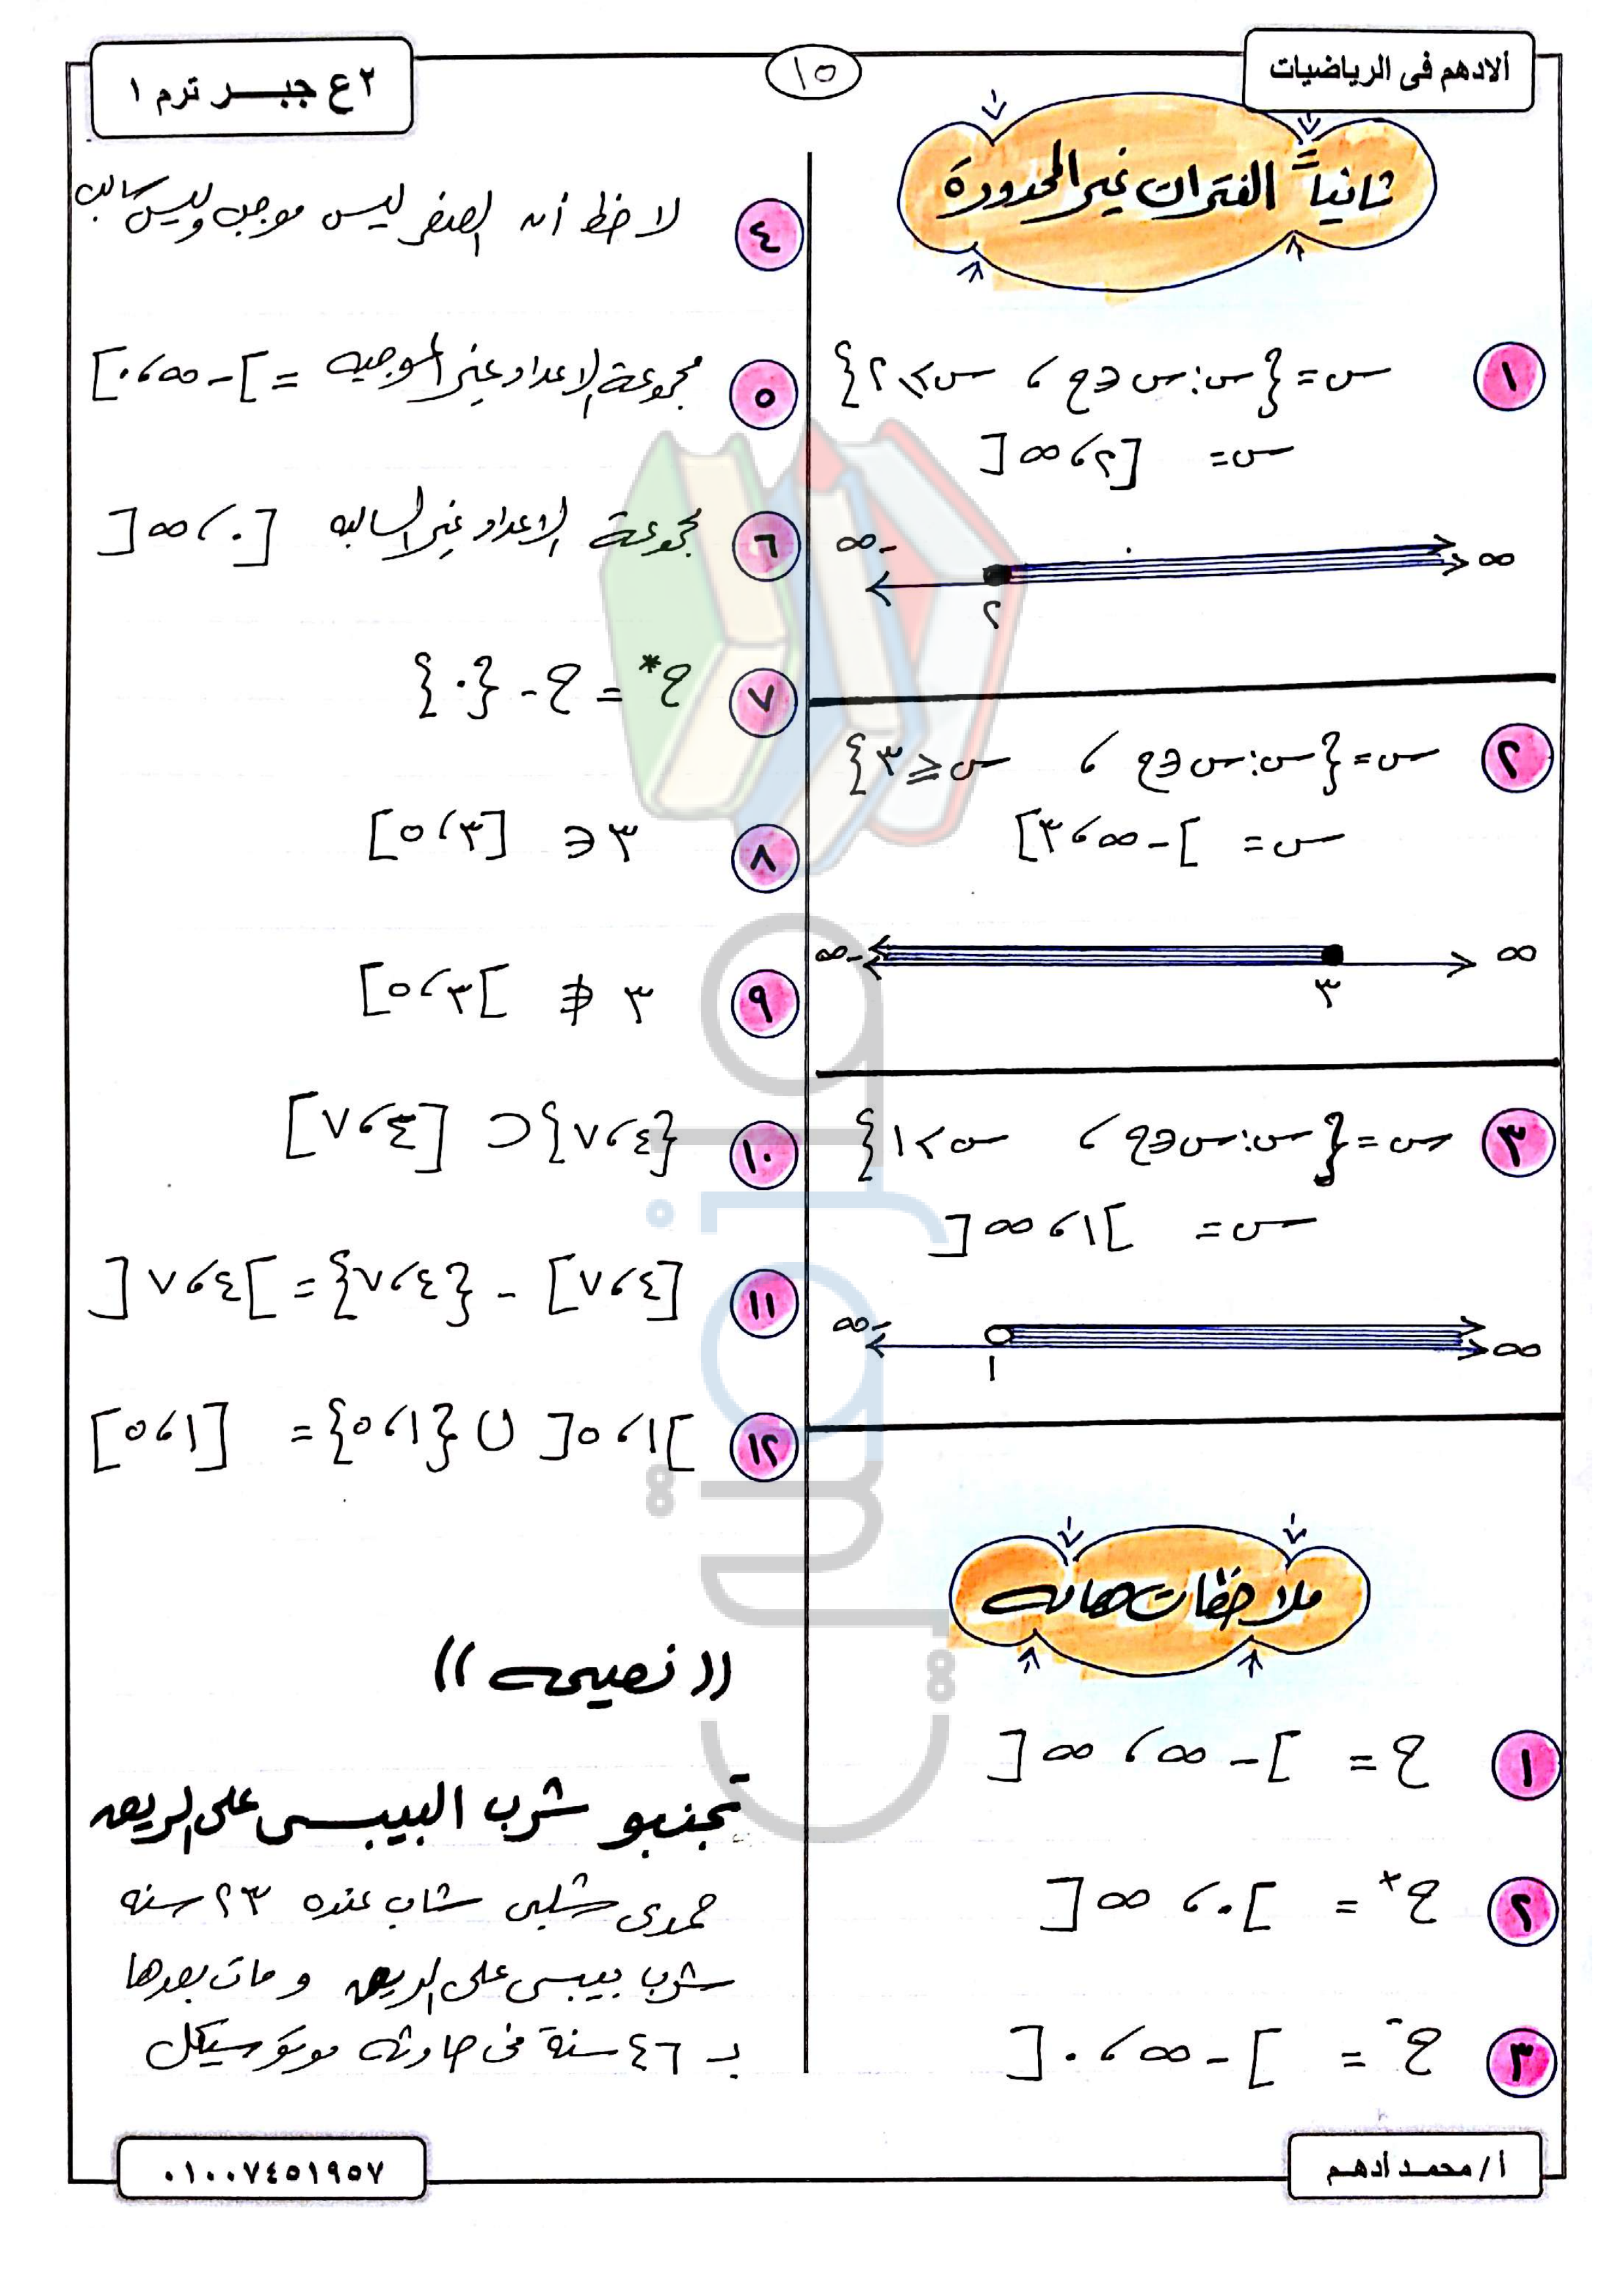 ألادهم فى الرياضيات
١٥
٢ ع جبــــر ترم ١
ثانياً الفترات غير المحدودة
١ س = {س : س ∈ ح ، س ≥ ٢}
س = [٢ ، ∞[
-∞ ∞
٢
٢ س = {س : س ∈ ح ، س ≤ ٣}
س = ]-∞ ، ٣]
-∞ ∞
٣
٣ س = {س : س ∈ ح ، س > ١}
س = ]١ ، ∞[
-∞ ∞
١
ملاحظات هامه
١ ح = ]-∞ ، ∞[
٢ ح⁺ = ]٠ ، ∞[
٣ ح⁻ = ]-∞ ، ٠[
٤ لاحظ أن الصفر ليس موجب وليس سالب
٥ مجموعة الاعداد غير الموجبه = ]-∞ ، ٠]
٦ مجموعة الاعداد غير السالبه [٠ ، ∞[
٧ ح* = ح - {٠}
٨ ٣ ∈ [٣ ، ٥]
٩ ٣ ∉ ]٣ ، ٥]
١٠ {٤ ، ٧} ⊂ [٤ ، ٧]
١١ [٤ ، ٧] - {٤ ، ٧} = ]٤ ، ٧[
١٢ ]١ ، ٥[ ∪ {١ ، ٥} = [١ ، ٥]
((نصيحه))
تجنبو شرب البيبسى على الريق
حمدى شلبى شاب عنده ٢٣ سنه
شرب بيبسى على الريق و مات بعدها
بـ ٤٦ سنة فى حادثه موتوسيكل
أ / محمـد أدهـم
٠١٠٠٧٤٥١٩٥٧